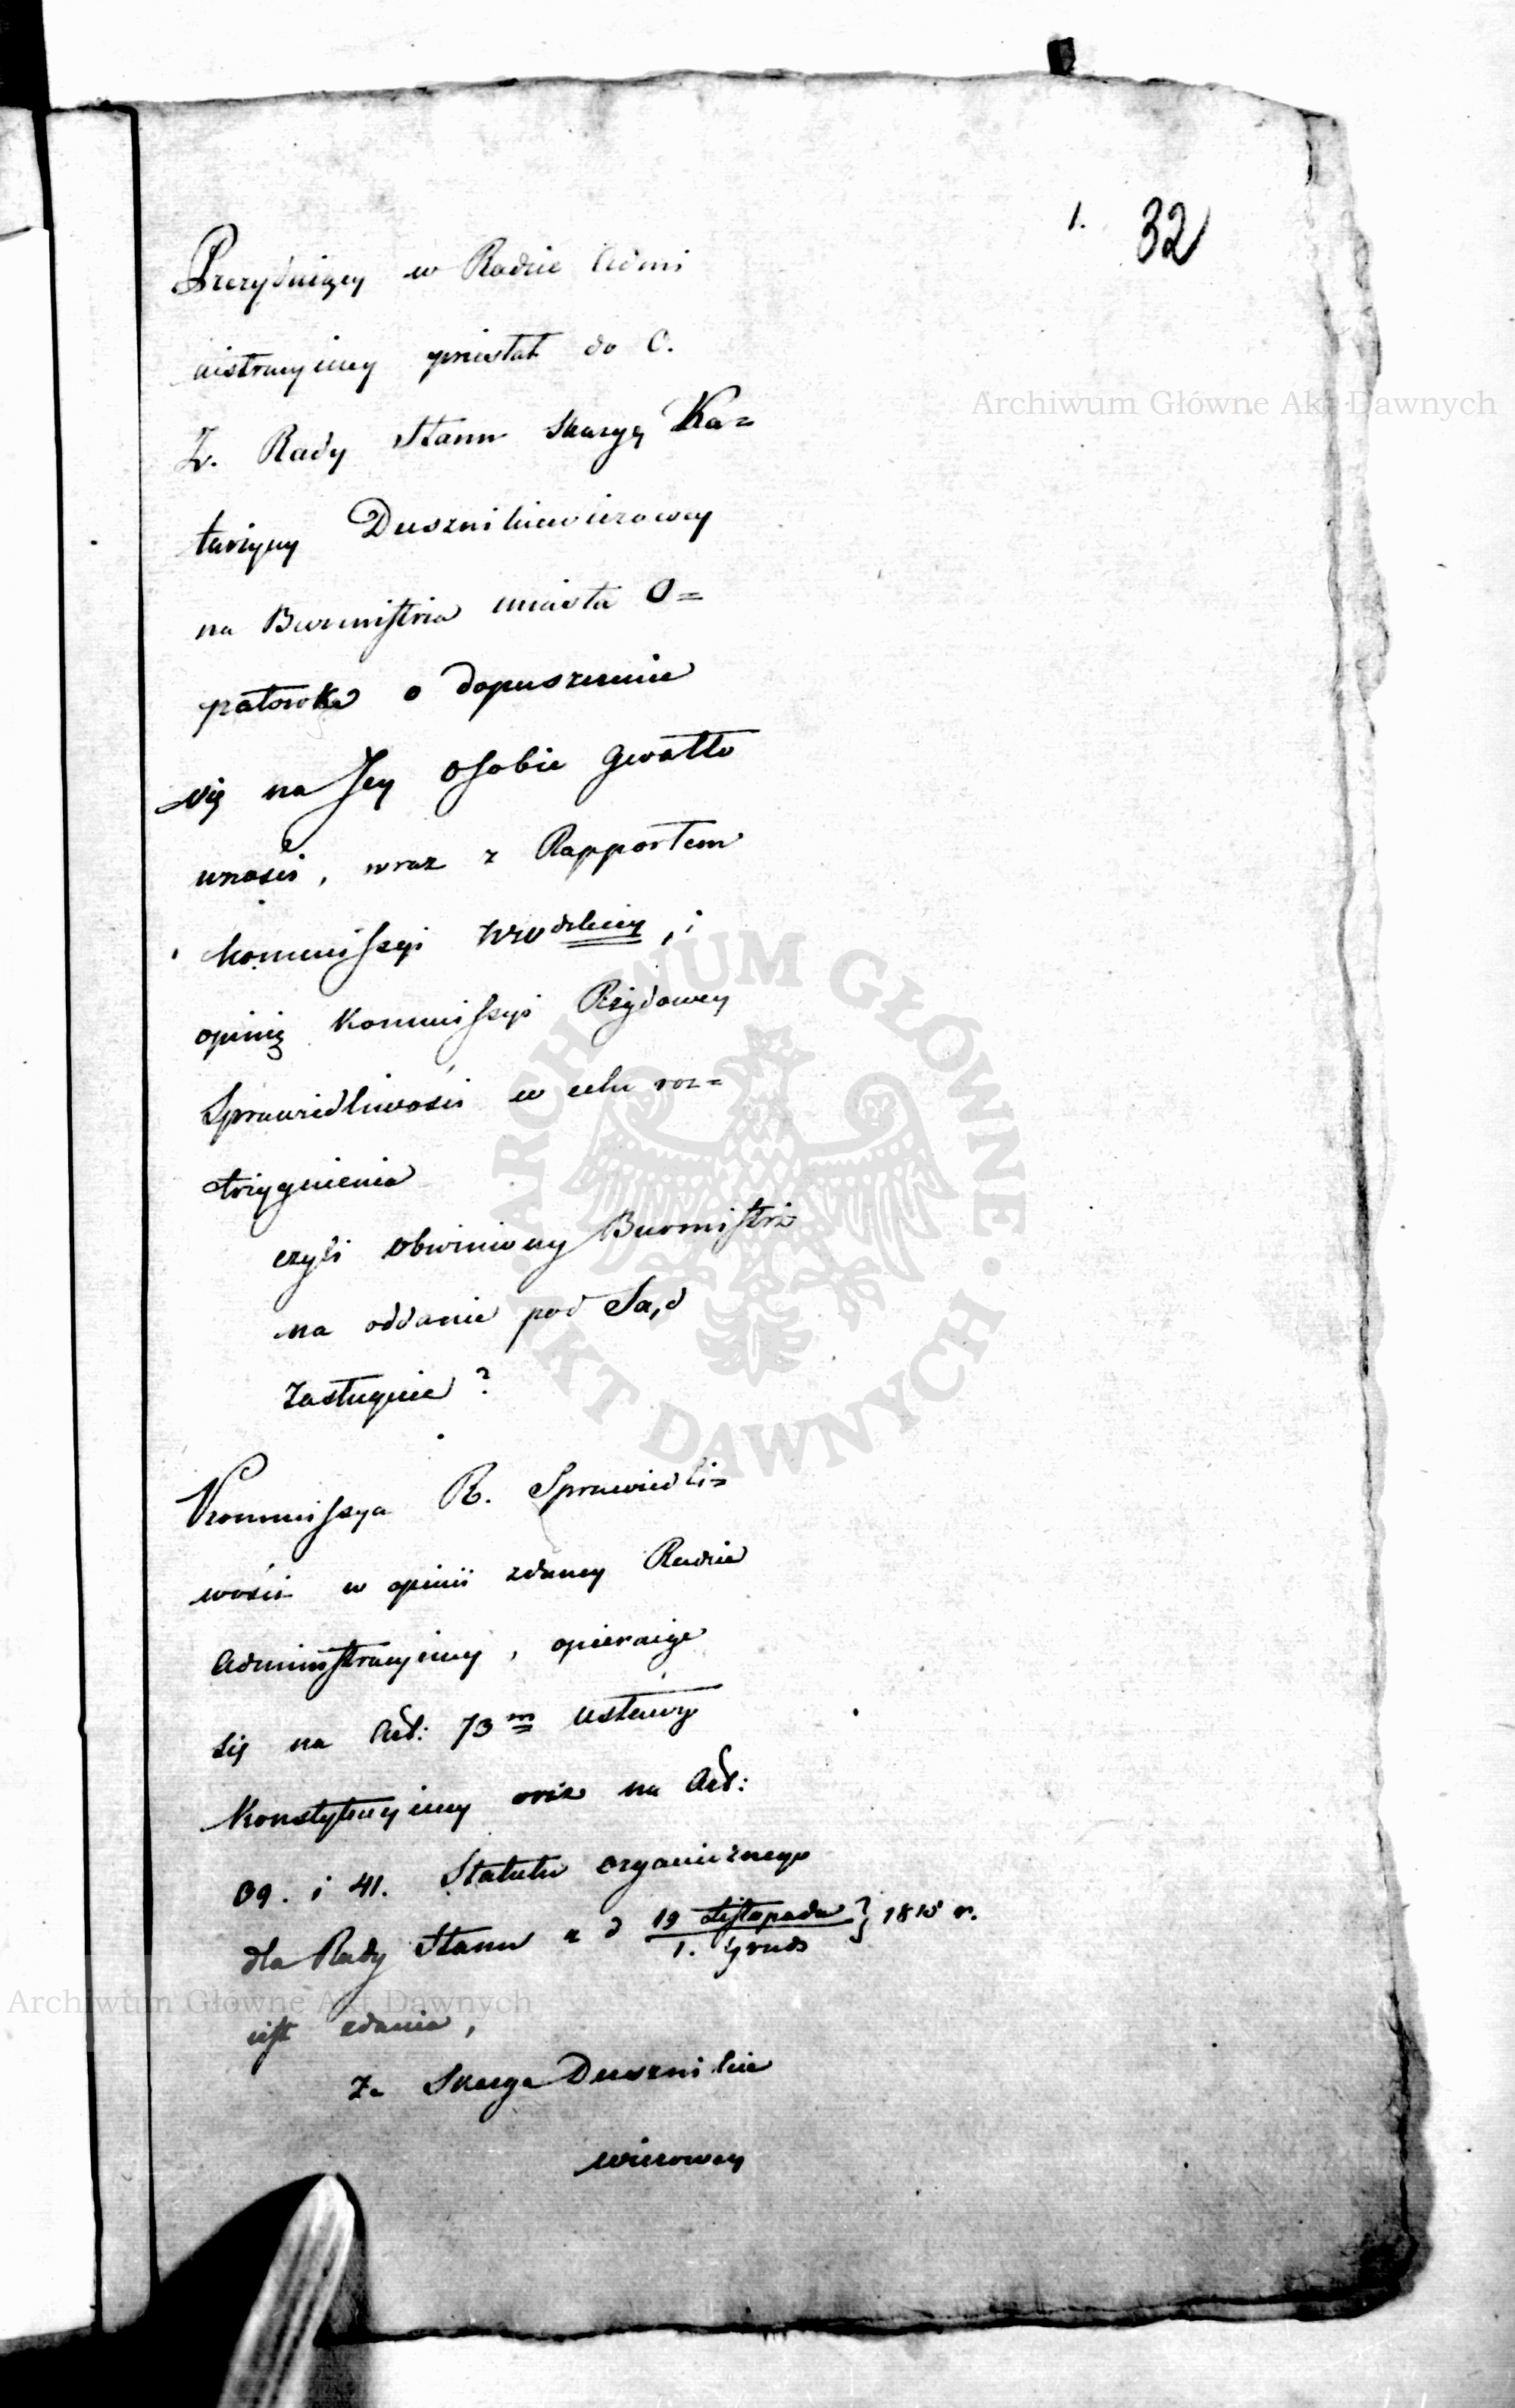 1. 32
Prezyduiący w Radzie Admi
nistracyiney przesłał do C.
Z. Rady Stanu skargę Ka=
tarzyny Dusznikiewiczowey
na Burmistrza miasta O=
patowka o dopuszczenie
się na Jey osobie gwałto
wności, wraz z Rapportem
Kommissyi Wdzkiey, i
opinią Kommissyi Rządowey
Sprawiedliwości w celu roz=
trzygnienia
czyli obwiniony Burmistrz
na oddanie pod Sąd
zasługuie?
Kommissya R. Sprawiedli=
wości w opinii zdaney Radzie
Administracyiney, opieraiąc
się na Art: 73m Ustawy
Konstytucyiney oraz na Art:
39. i 41. Statutu organicznego
dla Rady Stanu z d 19 Listopada / 1. Grud } 1815 r.
iest zdania,
Że Skarga Dusznikie
wiczowey
Archiwum Główne Akt Dawnych
ARCHIWUM GŁÓWNE · AKT DAWNYCH ·
Archiwum Główne Akt Dawnych